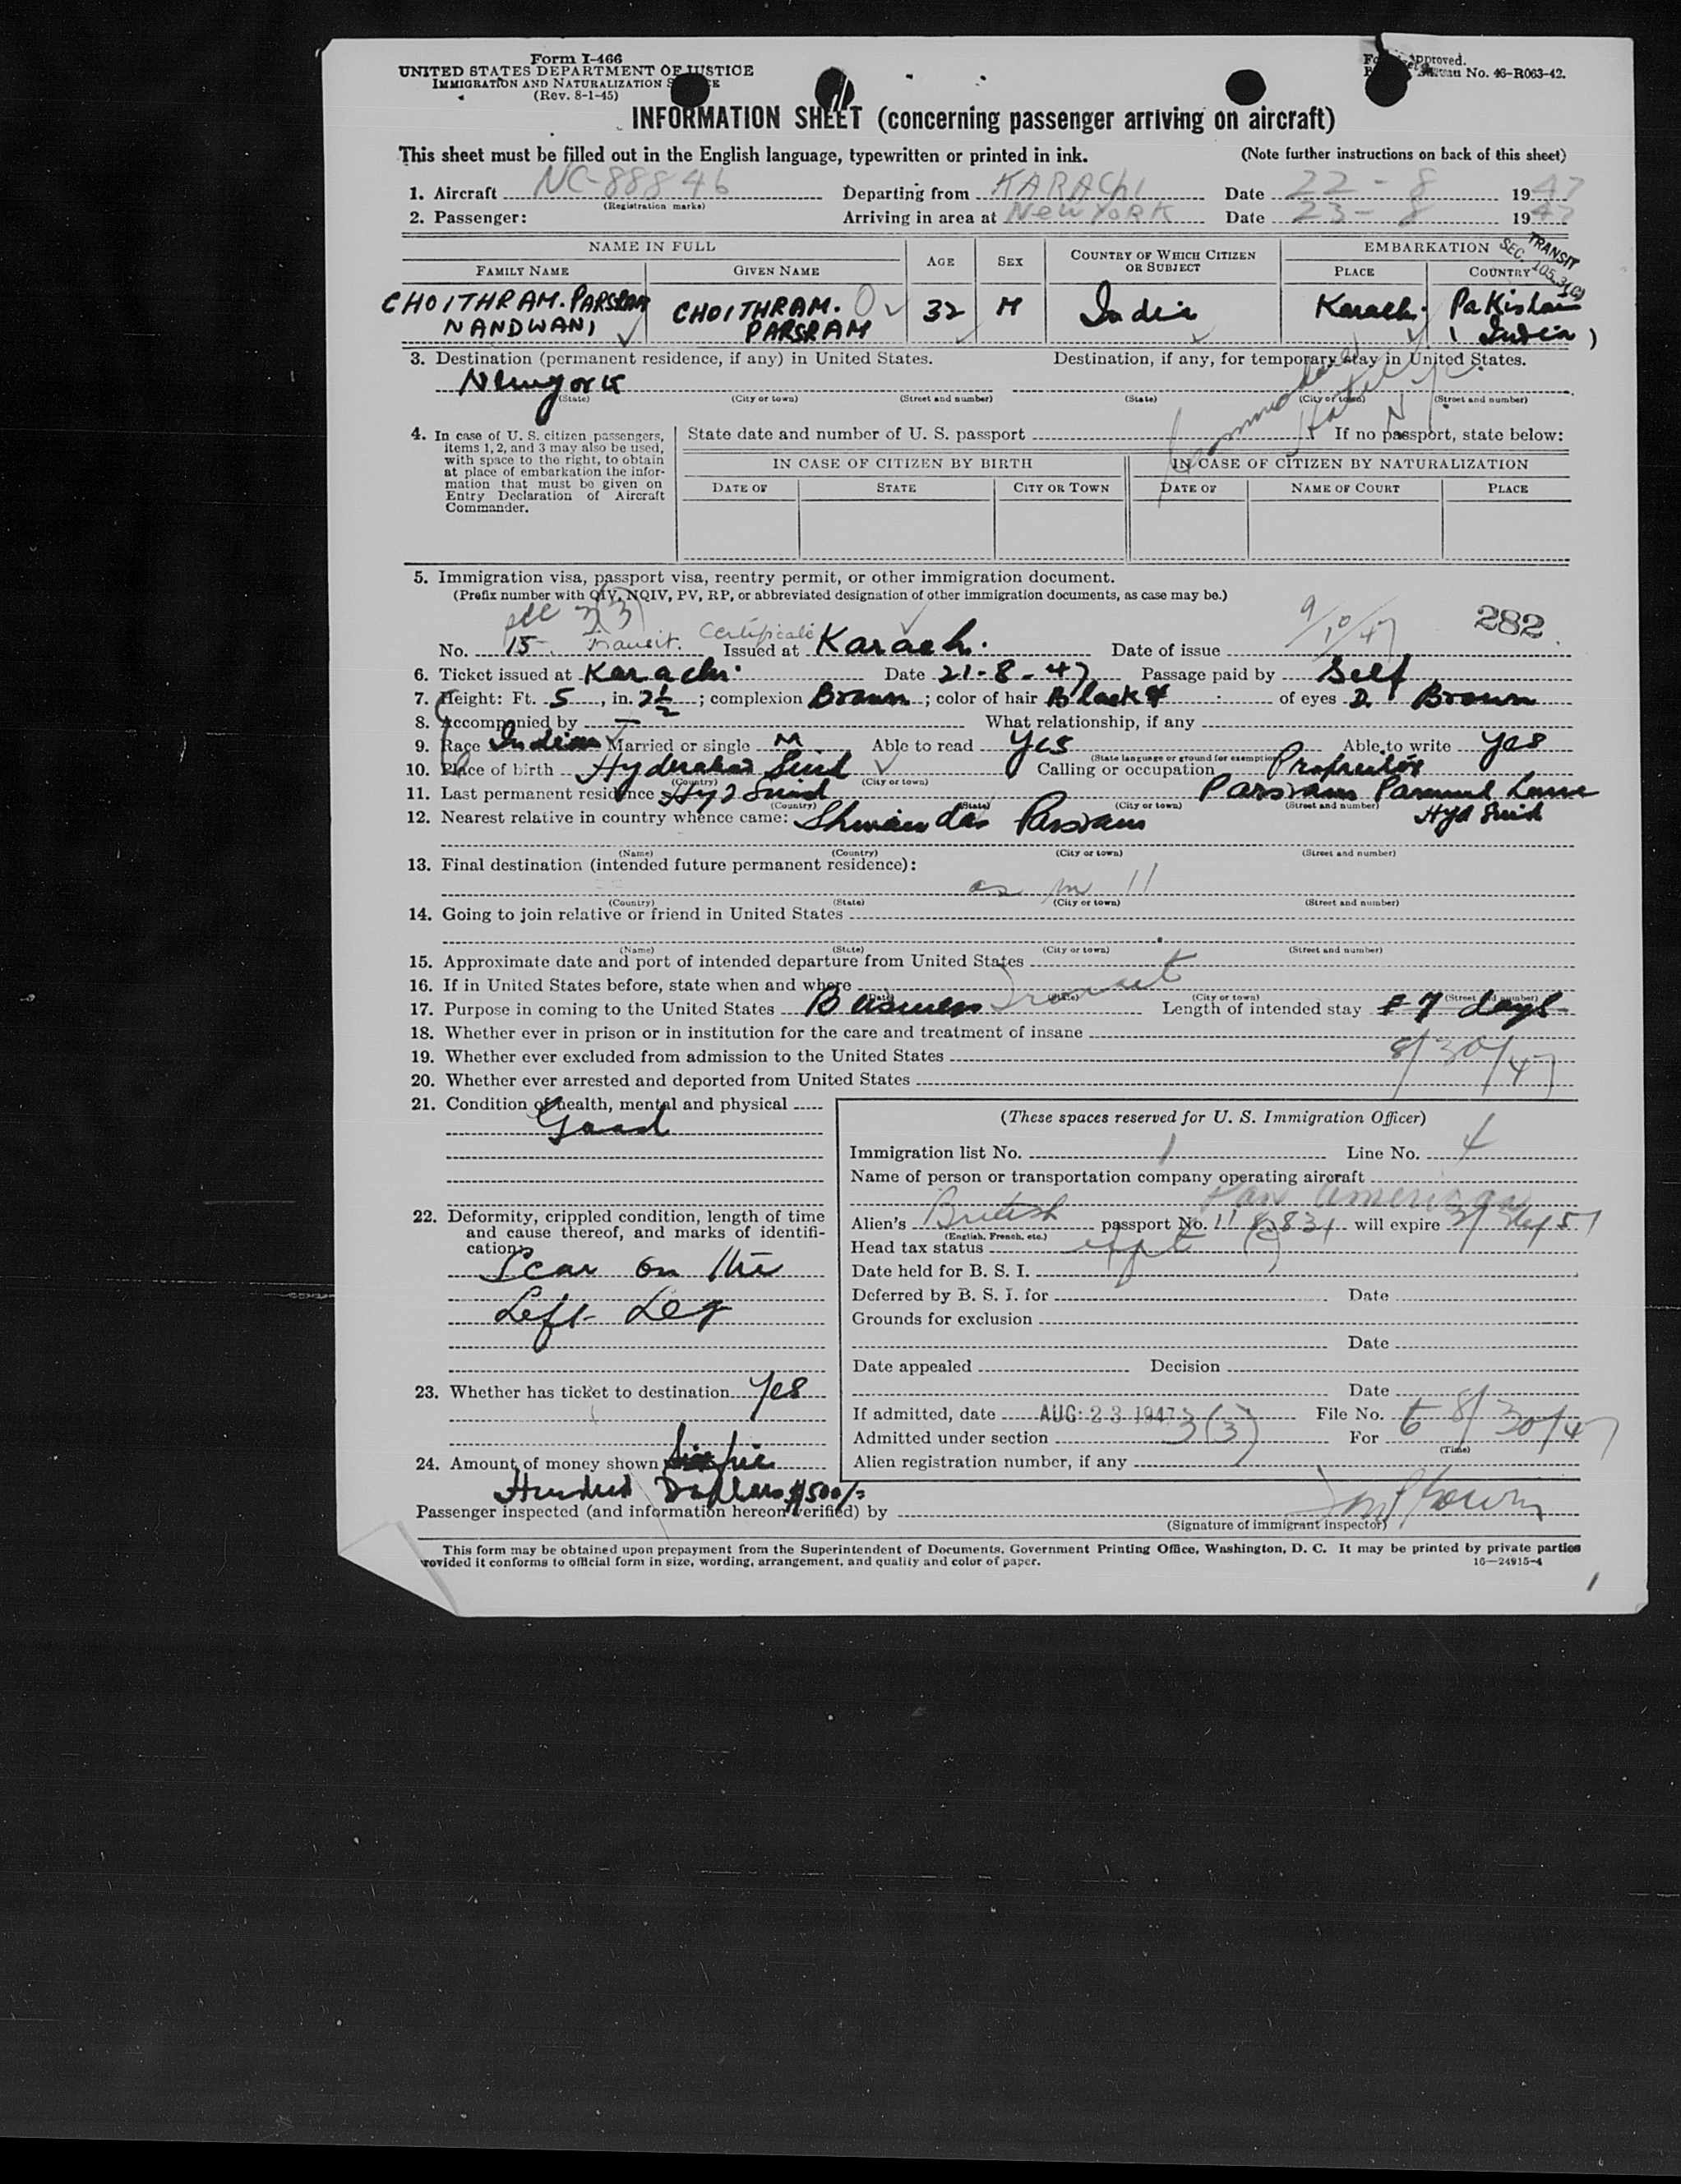 Form I-466
UNITED STATES DEPARTMENT OF JUSTICE
IMMIGRATION AND NATURALIZATION
(Rev. 8-1-45)
Approved.
No. 46-R063-42.
INFORMATION SHEET (concerning passenger arriving on aircraft)
This sheet must be filled out in the English language, typewritten or printed in ink.
(Note further instructions on back of this sheet)
1. Aircraft NC-88846 Departing from KARACHI Date 22-8 1947
(Registration marks)
2. Passenger: Arriving in area at New YORK Date 23-8 1947
TRANSIT
SEC. 105.3(C)
NAME IN FULL AGE SEX COUNTRY OF WHICH CITIZEN OR SUBJECT EMBARKATION
FAMILY NAME GIVEN NAME PLACE COUNTRY
CHOITHRAM. PARSRAM CHOITHRAM. 32 M India Karachi Pakistan
NANDWANI PARSRAM (India)
3. Destination (permanent residence, if any) in United States. Destination, if any, for temporary stay in United States.
Newyork
(State) (City or town) (Street and number) (State) (City or town) (Street and number)
Commodore Hotel N.Y.C.
4. In case of U. S. citizen passengers, items 1, 2, and 3 may also be used, with space to the right, to obtain at place of embarkation the information that must be given on Entry Declaration of Aircraft Commander.
State date and number of U. S. passport If no passport, state below:
IN CASE OF CITIZEN BY BIRTH IN CASE OF CITIZEN BY NATURALIZATION
DATE OF STATE CITY OR TOWN DATE OF NAME OF COURT PLACE
5. Immigration visa, passport visa, reentry permit, or other immigration document.
(Prefix number with QIV, NQIV, PV, RP, or abbreviated designation of other immigration documents, as case may be.)
sec 3(3) 9/10/47 282
No. 15 Transit Certificate Issued at Karachi Date of issue
6. Ticket issued at Karachi Date 21-8-47 Passage paid by Self
7. Height: Ft. 5, in. 2½; complexion Brown; color of hair Black of eyes D. Brown
8. Accompanied by — What relationship, if any
9. Race Indian Married or single M Able to read Yes Able to write yes
(State language or ground for exemption)
10. Place of birth Hyderabad Sind Calling or occupation Propreitor
(Country) (City or town)
11. Last permanent residence Hyd Sind Parsram Lane
(Country) (State) (City or town) (Street and number)
12. Nearest relative in country whence came: Parsram Hyd Sind
(Name) (Country) (City or town) (Street and number)
13. Final destination (intended future permanent residence):
as in 11
(Country) (State) (City or town) (Street and number)
14. Going to join relative or friend in United States
(Name) (State) (City or town) (Street and number)
15. Approximate date and port of intended departure from United States
16. If in United States before, state when and where
(Date) (State) (City or town) (Street and number)
17. Purpose in coming to the United States Business Transit Length of intended stay 7 days
18. Whether ever in prison or in institution for the care and treatment of insane
19. Whether ever excluded from admission to the United States 8/30/47
20. Whether ever arrested and deported from United States
21. Condition of health, mental and physical
Good
22. Deformity, crippled condition, length of time and cause thereof, and marks of identification:
Scar on the
Left Leg
23. Whether has ticket to destination Yes
24. Amount of money shown five
Hundred Dollars $500/-
(These spaces reserved for U. S. Immigration Officer)
Immigration list No. 1 Line No. 4
Name of person or transportation company operating aircraft
Pan American
Alien's British passport No. will expire
(English, French, etc.)
Head tax status
Date held for B. S. I.
Deferred by B. S. I. for Date
Grounds for exclusion
Date
Date appealed Decision
Date
If admitted, date AUG 23 1947 File No.
Admitted under section 3(3) For to 8/30/47
(Time)
Alien registration number, if any
Passenger inspected (and information hereon verified) by
(Signature of immigrant inspector)
This form may be obtained upon prepayment from the Superintendent of Documents, Government Printing Office, Washington, D. C. It may be printed by private parties
provided it conforms to official form in size, wording, arrangement, and quality and color of paper.
16—24915-4